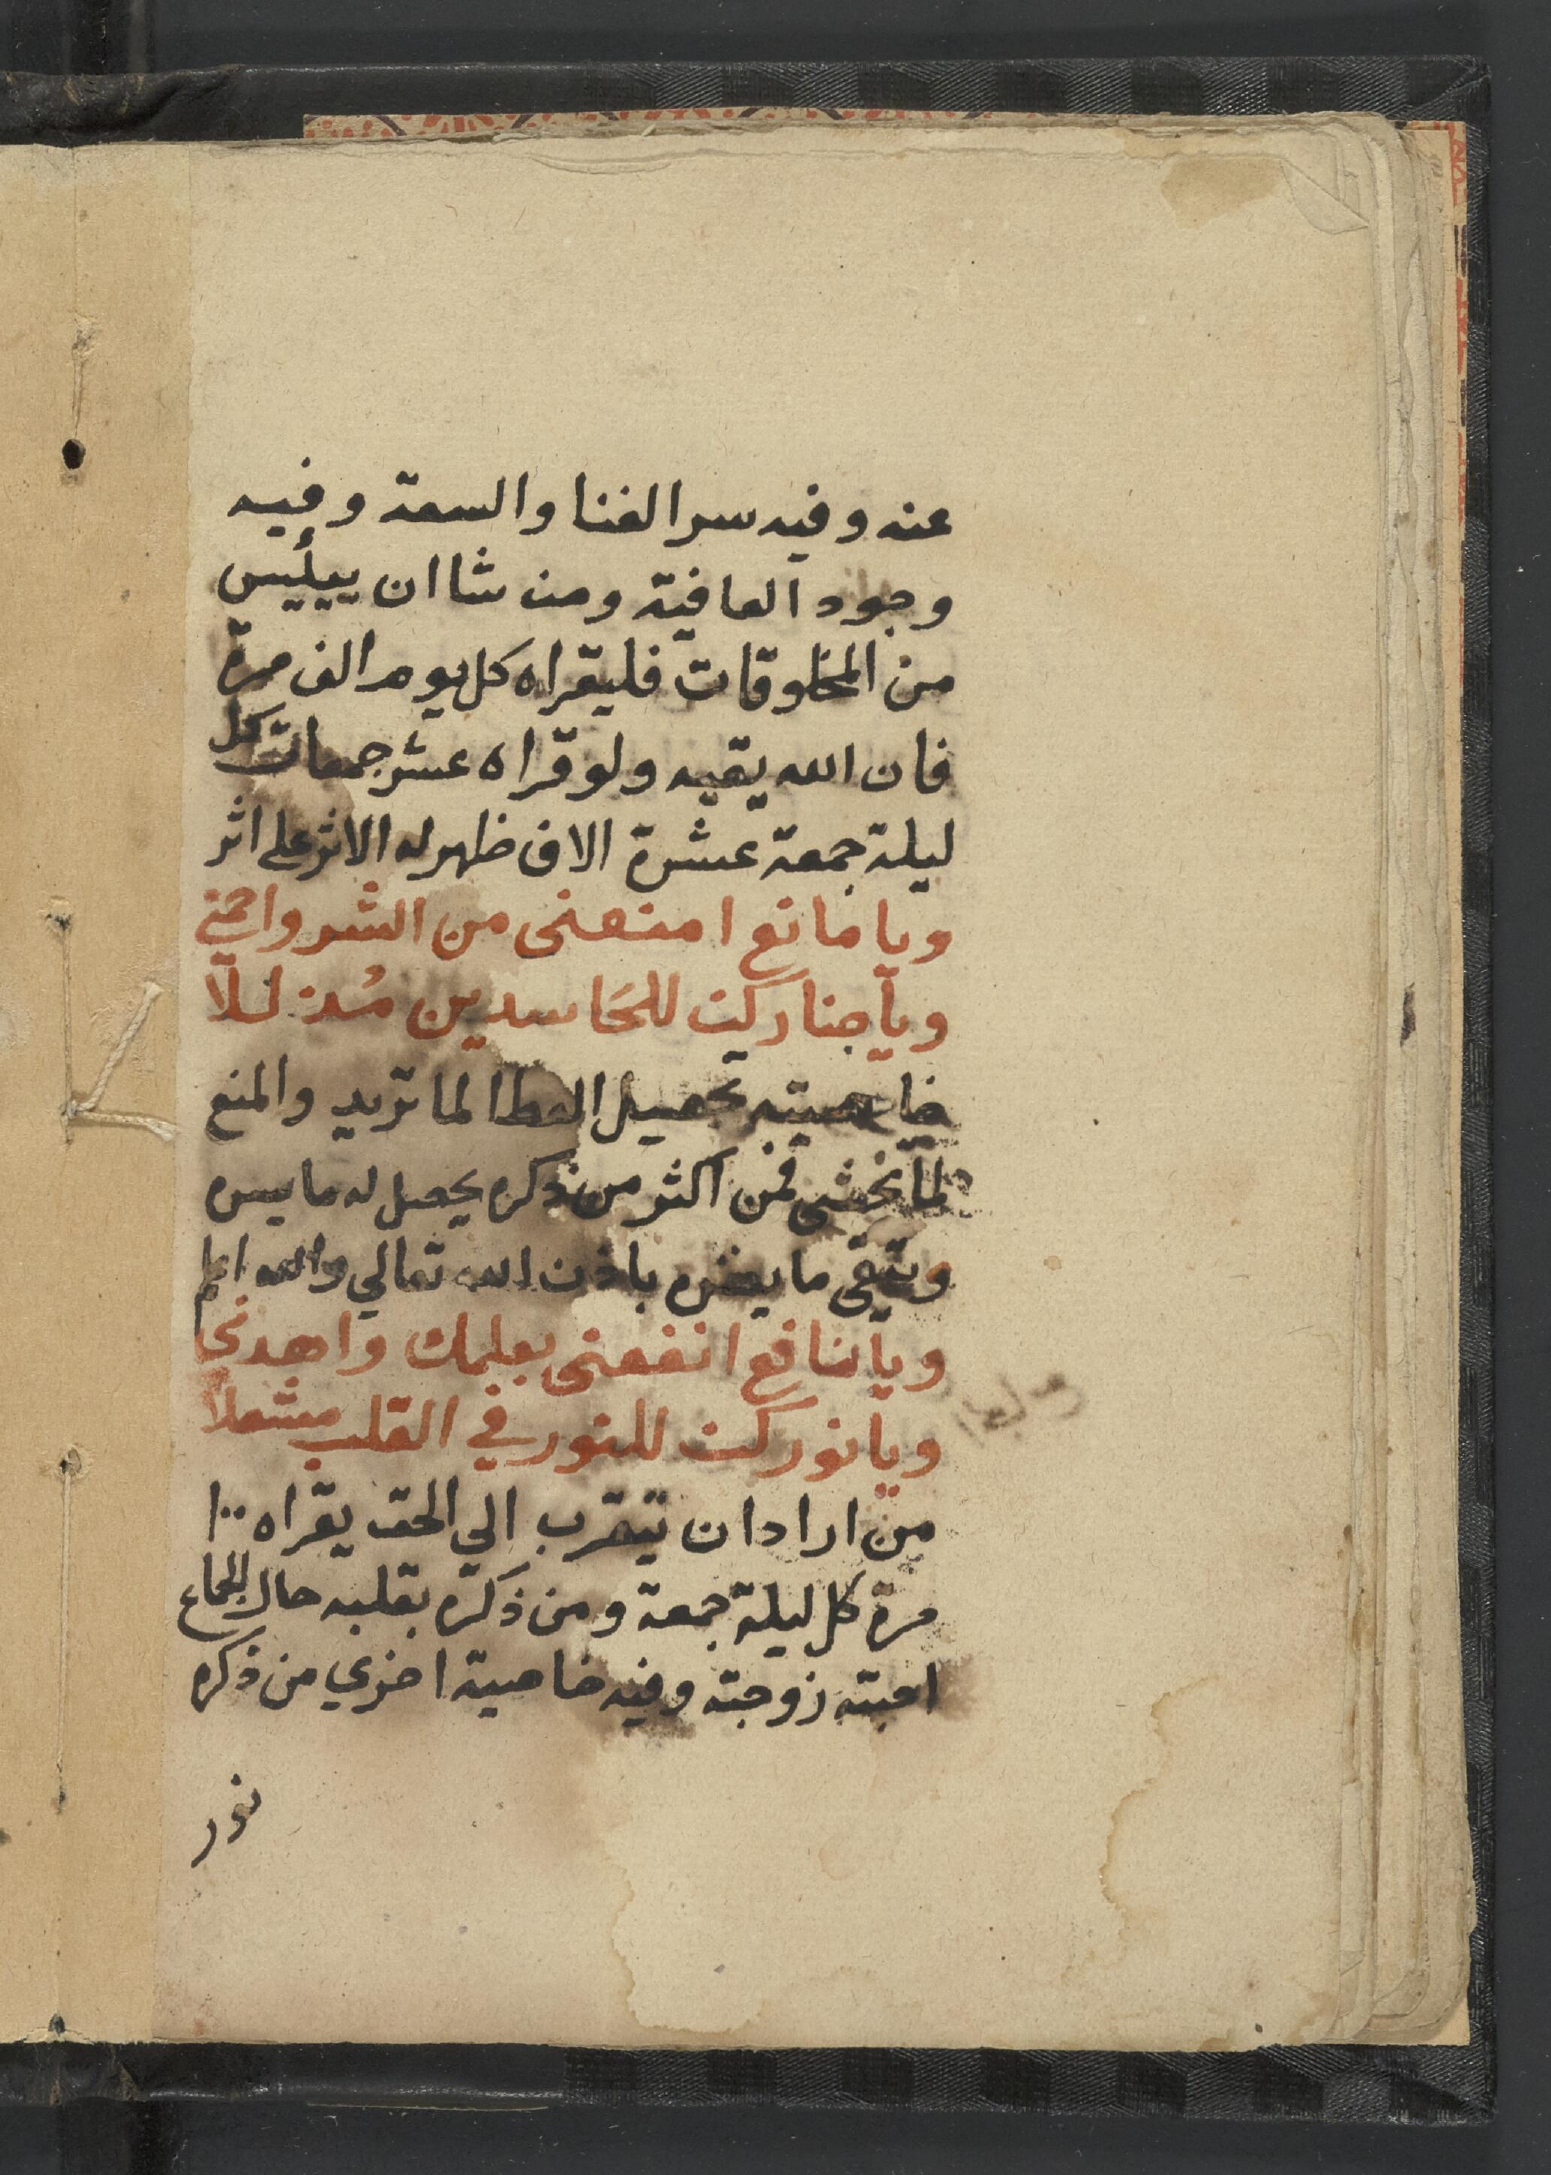 عنه وفيه سر الغنا والسعة وفيه
وجود العافية ومن شا ان ييئيس
من المخلوقات فليقراه كل يوم الف مرة
فان الله يقيه ولو قراه عشر جمعات كل
ليلة جمعة عشرة الاف ظهر له الاثر على اثر
ويا مانع امنعنى من الشر واحمني
ويا ضار كن للحاسدين مُذللا
خاصيته تحصيل العطا لما تريد والمنع
لما تخشى فمن اكثر من ذكره يحصل له ما يسره
ويتقى ما يضره باذن الله تعالي والله اعلم
ويا نافع انفعنى بعلمك واهدني
ويا نور كن للنور في القلب مشعلا
من اراد ان يتقرب الي الحق يقراه ١٠٠
مرة كل ليلة جمعة ومن ذكره بقلبه حال الجماع
احبته زوجته وفيه خاصية اخري من ذكره
نور